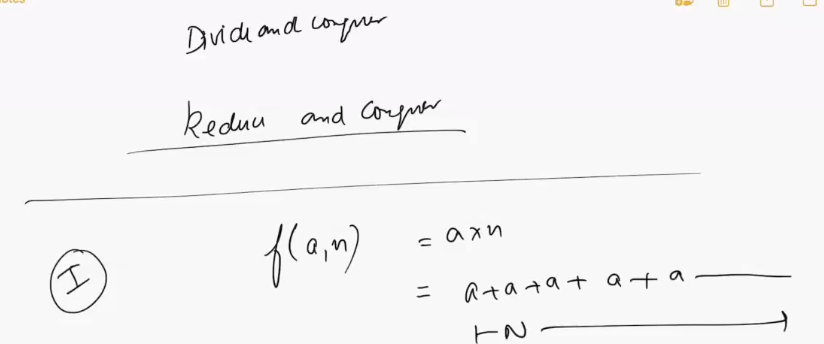 Divide and conquer
Reduce and Conquer
I
f(a,n) = a×n
= a+a+a+ a+a
N